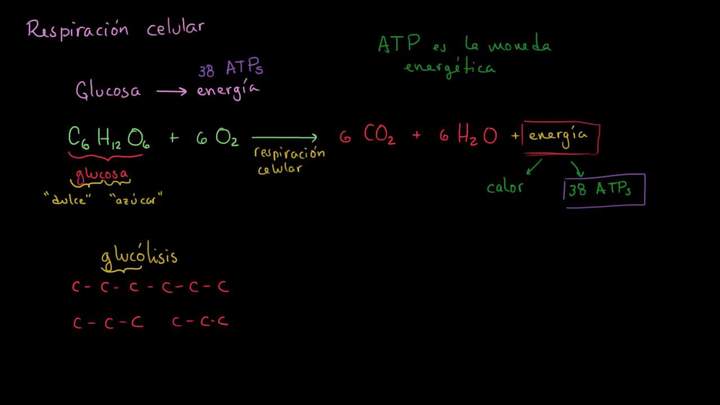 Respiración celular
ATP es la moneda
energética
38 ATPs
Glucosa → energía
C6H12O6 + 6 O2 → 6 CO2 + 6 H2O + energía
respiración
celular
glucosa
"dulce" "azúcar"
calor 38 ATPs
glucólisis
C-C-C-C-C-C
C-C-C C-C-C